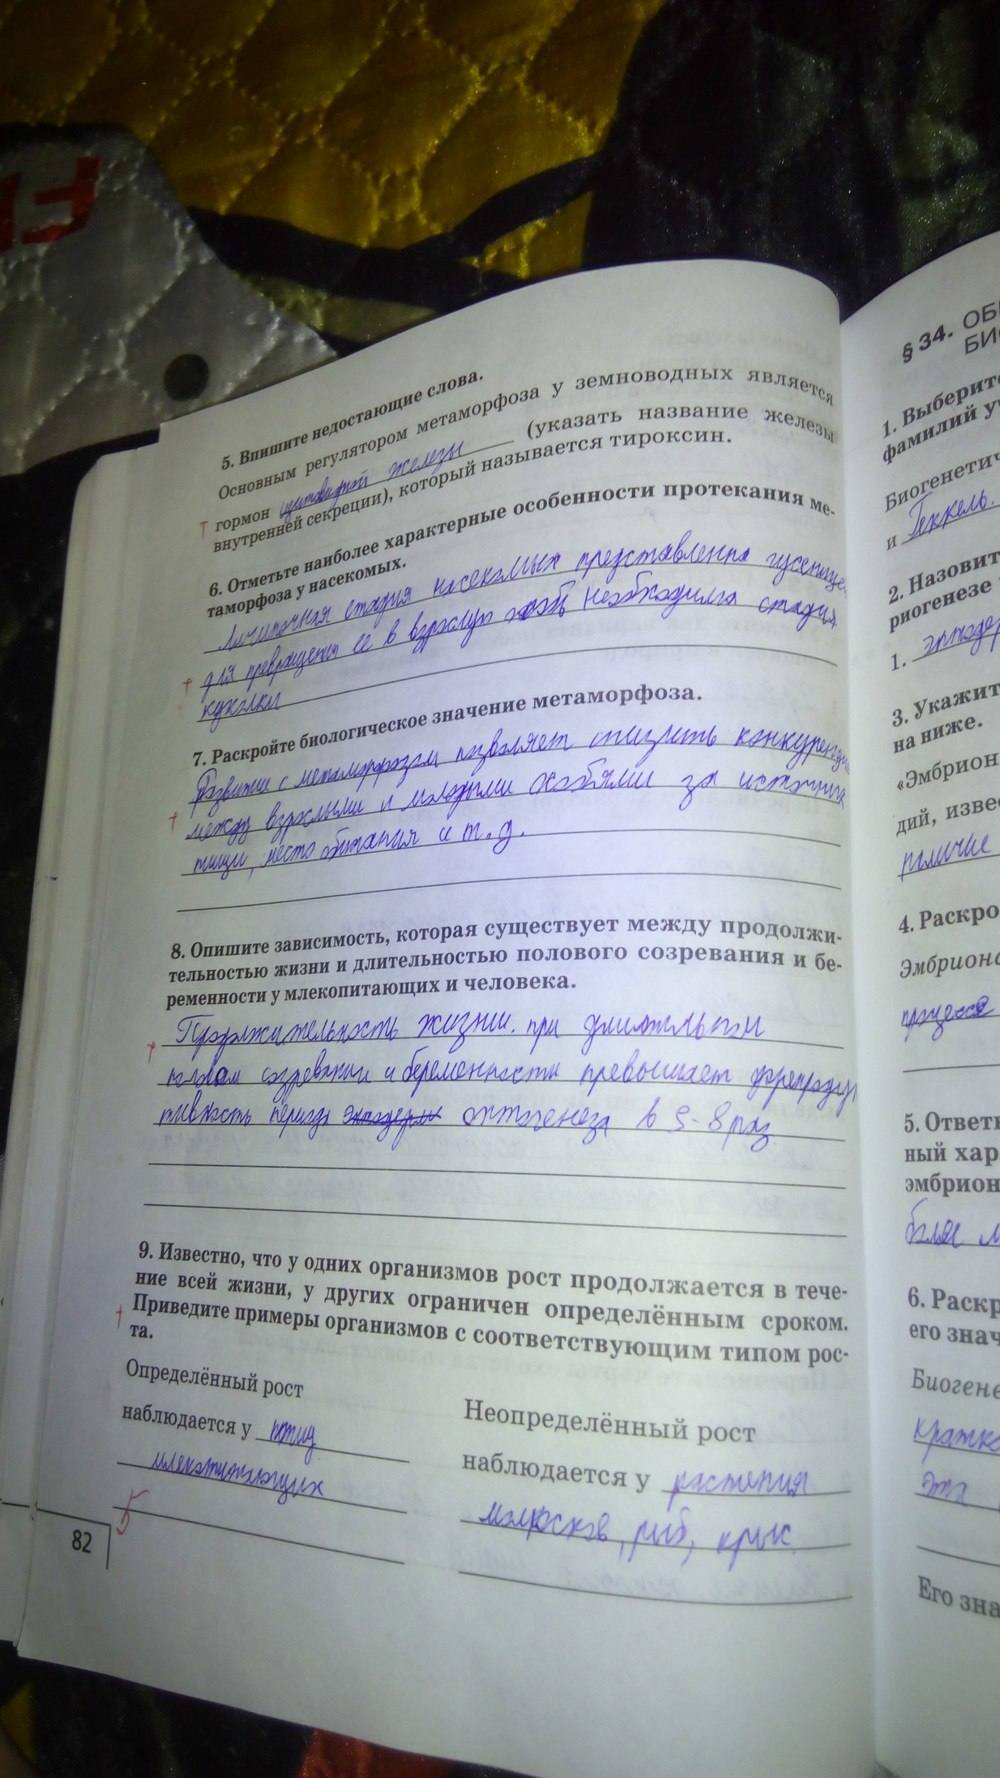 5. Впишите недостающие слова.
Основным регулятором метаморфоза у земноводных является
гормон щитовидной железы (указать название железы
внутренней секреции), который называется тироксин.
6. Отметьте наиболее характерные особенности протекания ме-
таморфоза у насекомых.
Личиночная стадия насекомых представленна
для превращения её в взрослую особь необходима стадия
куколки
7. Раскройте биологическое значение метаморфоза.
Развитие с метаморфозом позволяет снизить
между взрослыми и молодыми особями за
пищи, место обитания и т.д.
8. Опишите зависимость, которая существует между продолжи-
тельностью жизни и длительностью полового созревания и бе-
ременности у млекопитающих и человека.
Продолжительность жизни. при длительном
половом созревании и беременности превышает
тивность период онтогенеза в 5-8 раз
9. Известно, что у одних организмов рост продолжается в тече-
ние всей жизни, у других ограничен определённым сроком.
Приведите примеры организмов с соответствующим типом рос-
та.
Определённый рост
наблюдается у птиц
млекопитающих
Неопределённый рост
наблюдается у растения
молюсков, рыб, крыс
5
82
§ 34. ОБ
БИО
1. Выберите
фамилий у
Биогенетич
и Геккель.
2. Назовит
риогенезе
1. эктодер
3. Укажит
на ниже.
«Эмбрион
дий, извес
наличие
4. Раскро
Эмбриона
процесс
5. Ответь
ный хар
эмбрион
более м
6. Раскр
его знач
Биогене
кратко
эта
Его зна